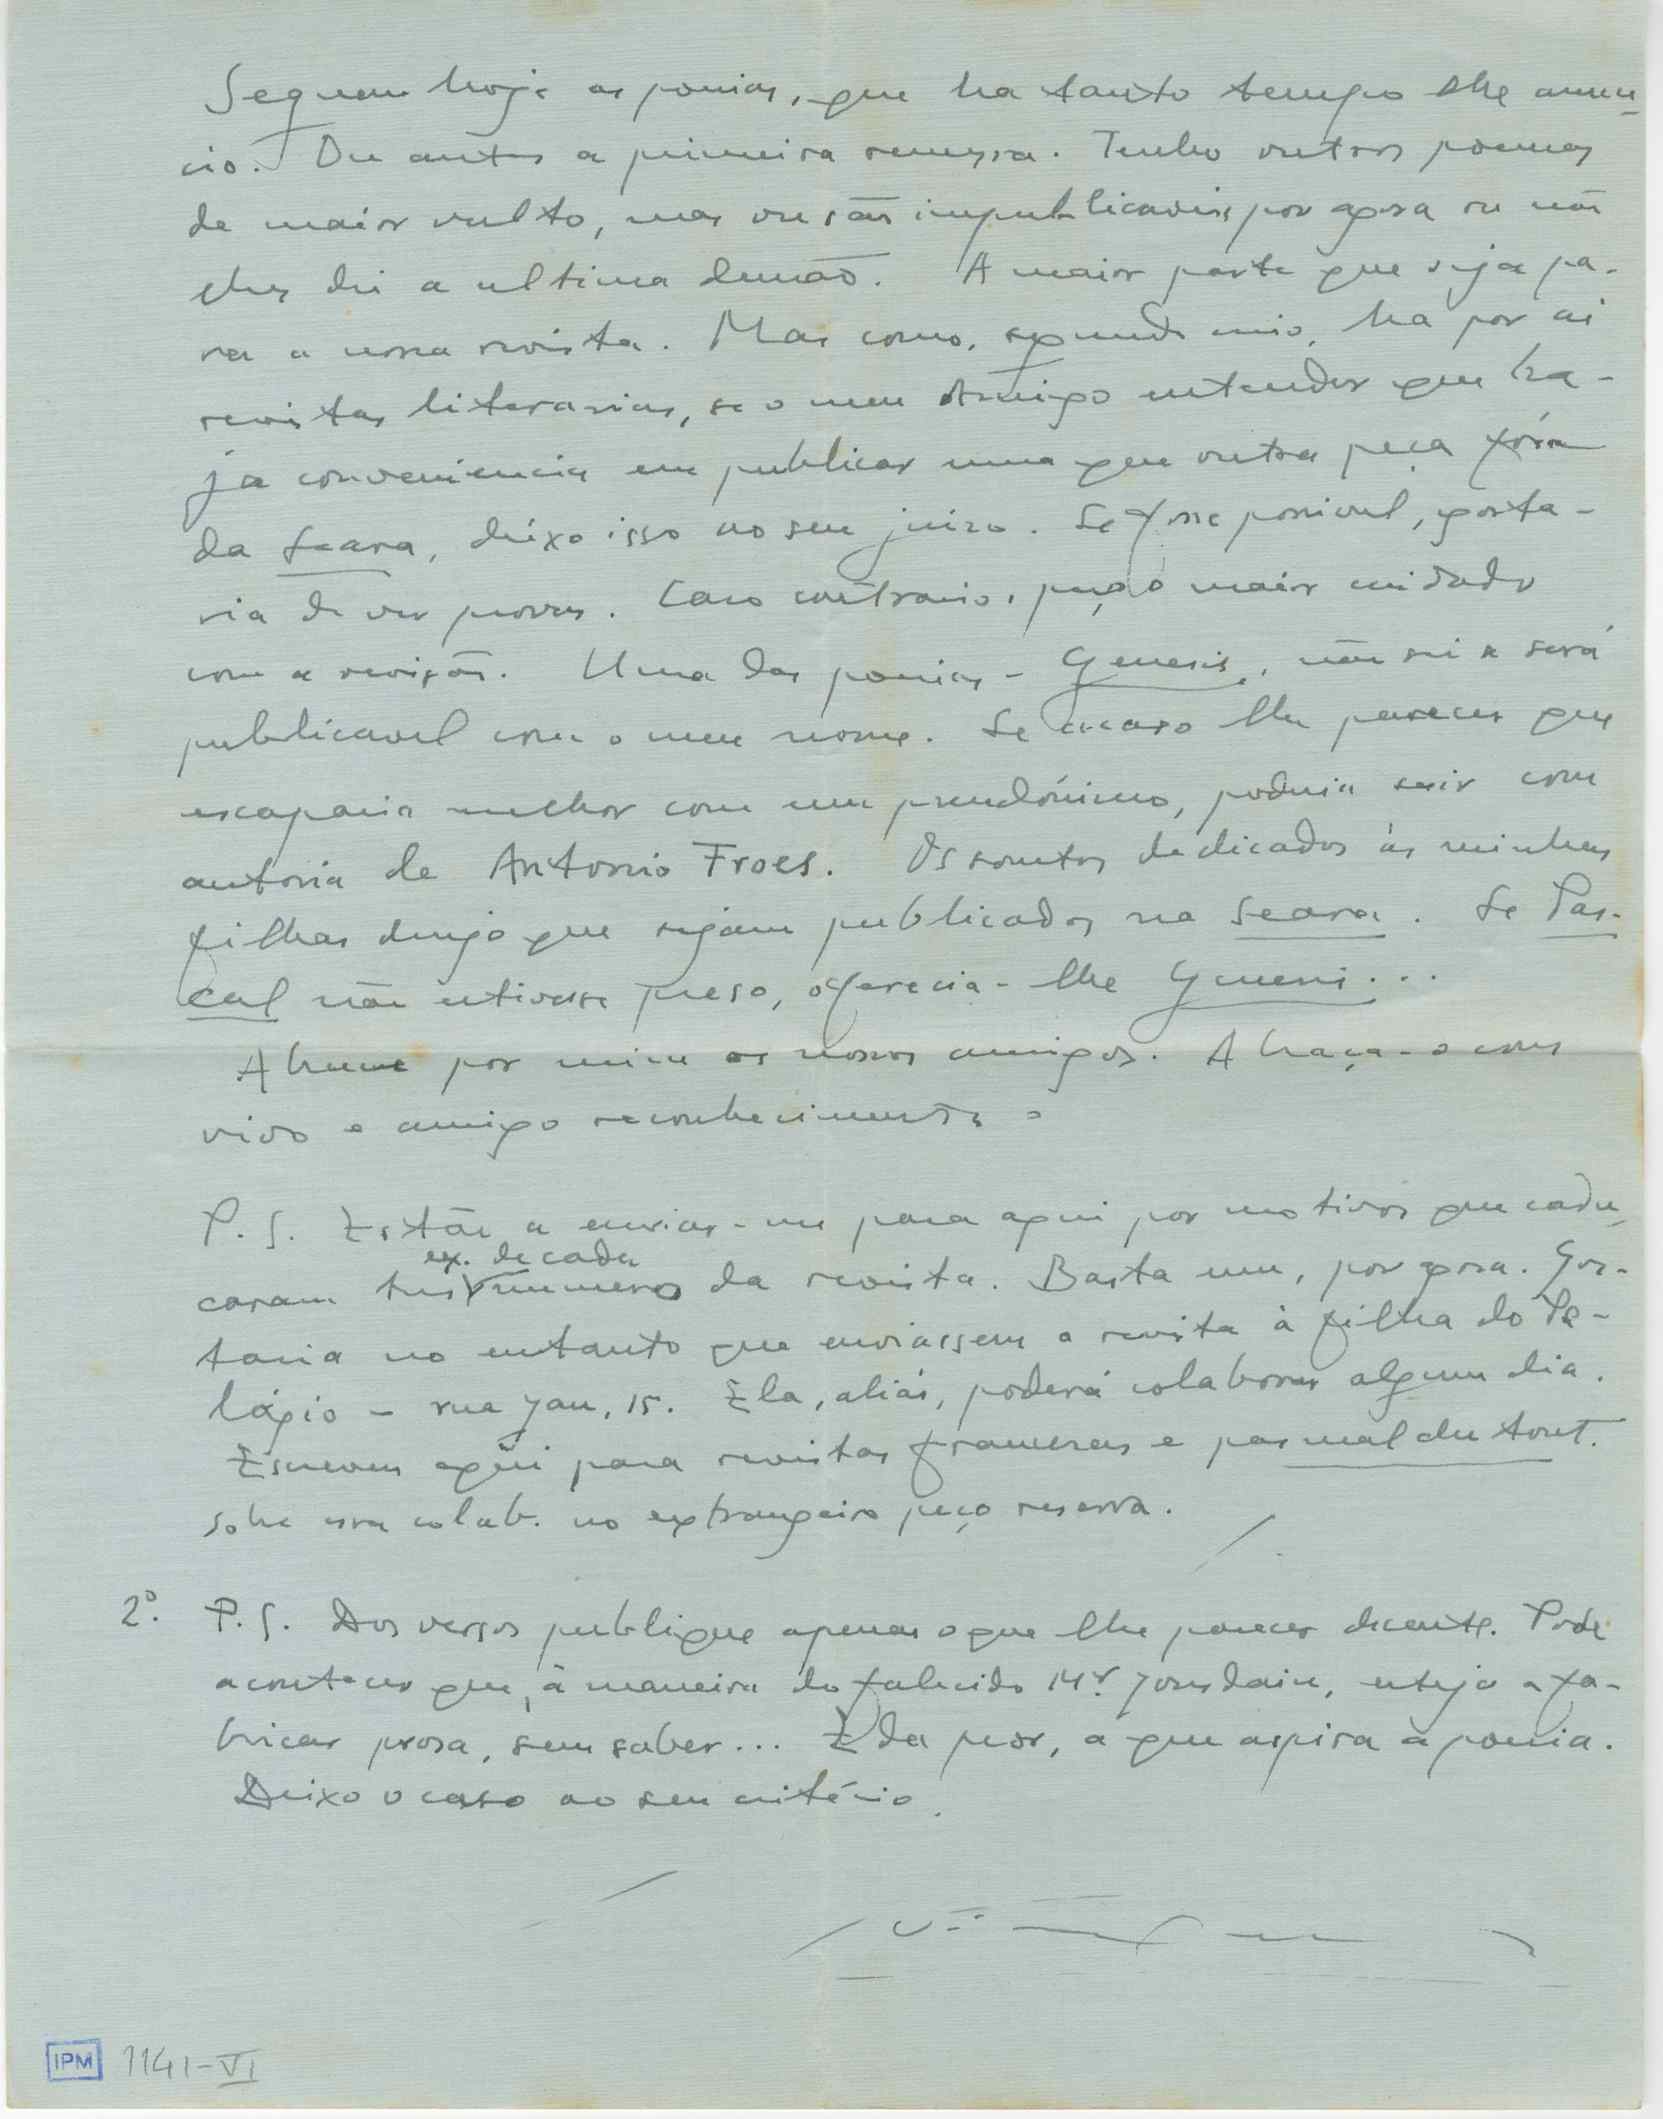 Seguem hoje as poesias, que ha tanto tempo lhe anun-
cio. Ou antes a primeira remessa. Tenho outros poemas
de maior vulto, mas ou são impublicaveis por agora ou não
lhes dei a ultima demão. A maior parte que seja pa-
ra a nossa revista. Mas como, segundo creio, ha por ai
revistas literarias, se o meu Amigo entender que ha-
ja conveniencia em publicar uma que outra peça fóra
da Seara, deixo isso ao seu juizo. Se fosse possivel, gosta-
ria de ver provas. Caso contrario, peço o maior cuidado
com a revisão. Uma das poesias - Genesis, não sei se será
publicavel com o meu nome. Se acaso lhe parecer que
escaparia melhor com um pseudónimo, poderia sair com
autoria de Antonio Froes. Os sonetos dedicados ás minhas
filhas desejo que sejam publicados na Seara. Se Pas-
cal não estivesse preso, oferecia-lhe Genesis...
Abrace por mim os nossos amigos. Abraça-o com
vivo e amigo reconhecimento o
P.S. Estão a enviar-me para aqui por motivos que cadu-
ex. de cada
caram tres numero da revista. Basta um, por agora. Gos-
taria no entanto que enviassem a revista á filha do Pe-
lágio - rua Jau, 15. Ela, aliás, poderá colaborar algum dia.
Escreveu aqui para revistas francesas e pas mal du tout.
Sobre essa colab. no extrangeiro peço reserva.
2º. P.S. Dos versos publique apenas o que lhe parecer decente. Pode
acontecer que, á maneira do falecido Mr. Jourdain, esteja a fa-
bricar prosa, sem saber... E da peor, a que aspira a poesia.
Deixo o caso ao seu critério.
IPM 1141-VI